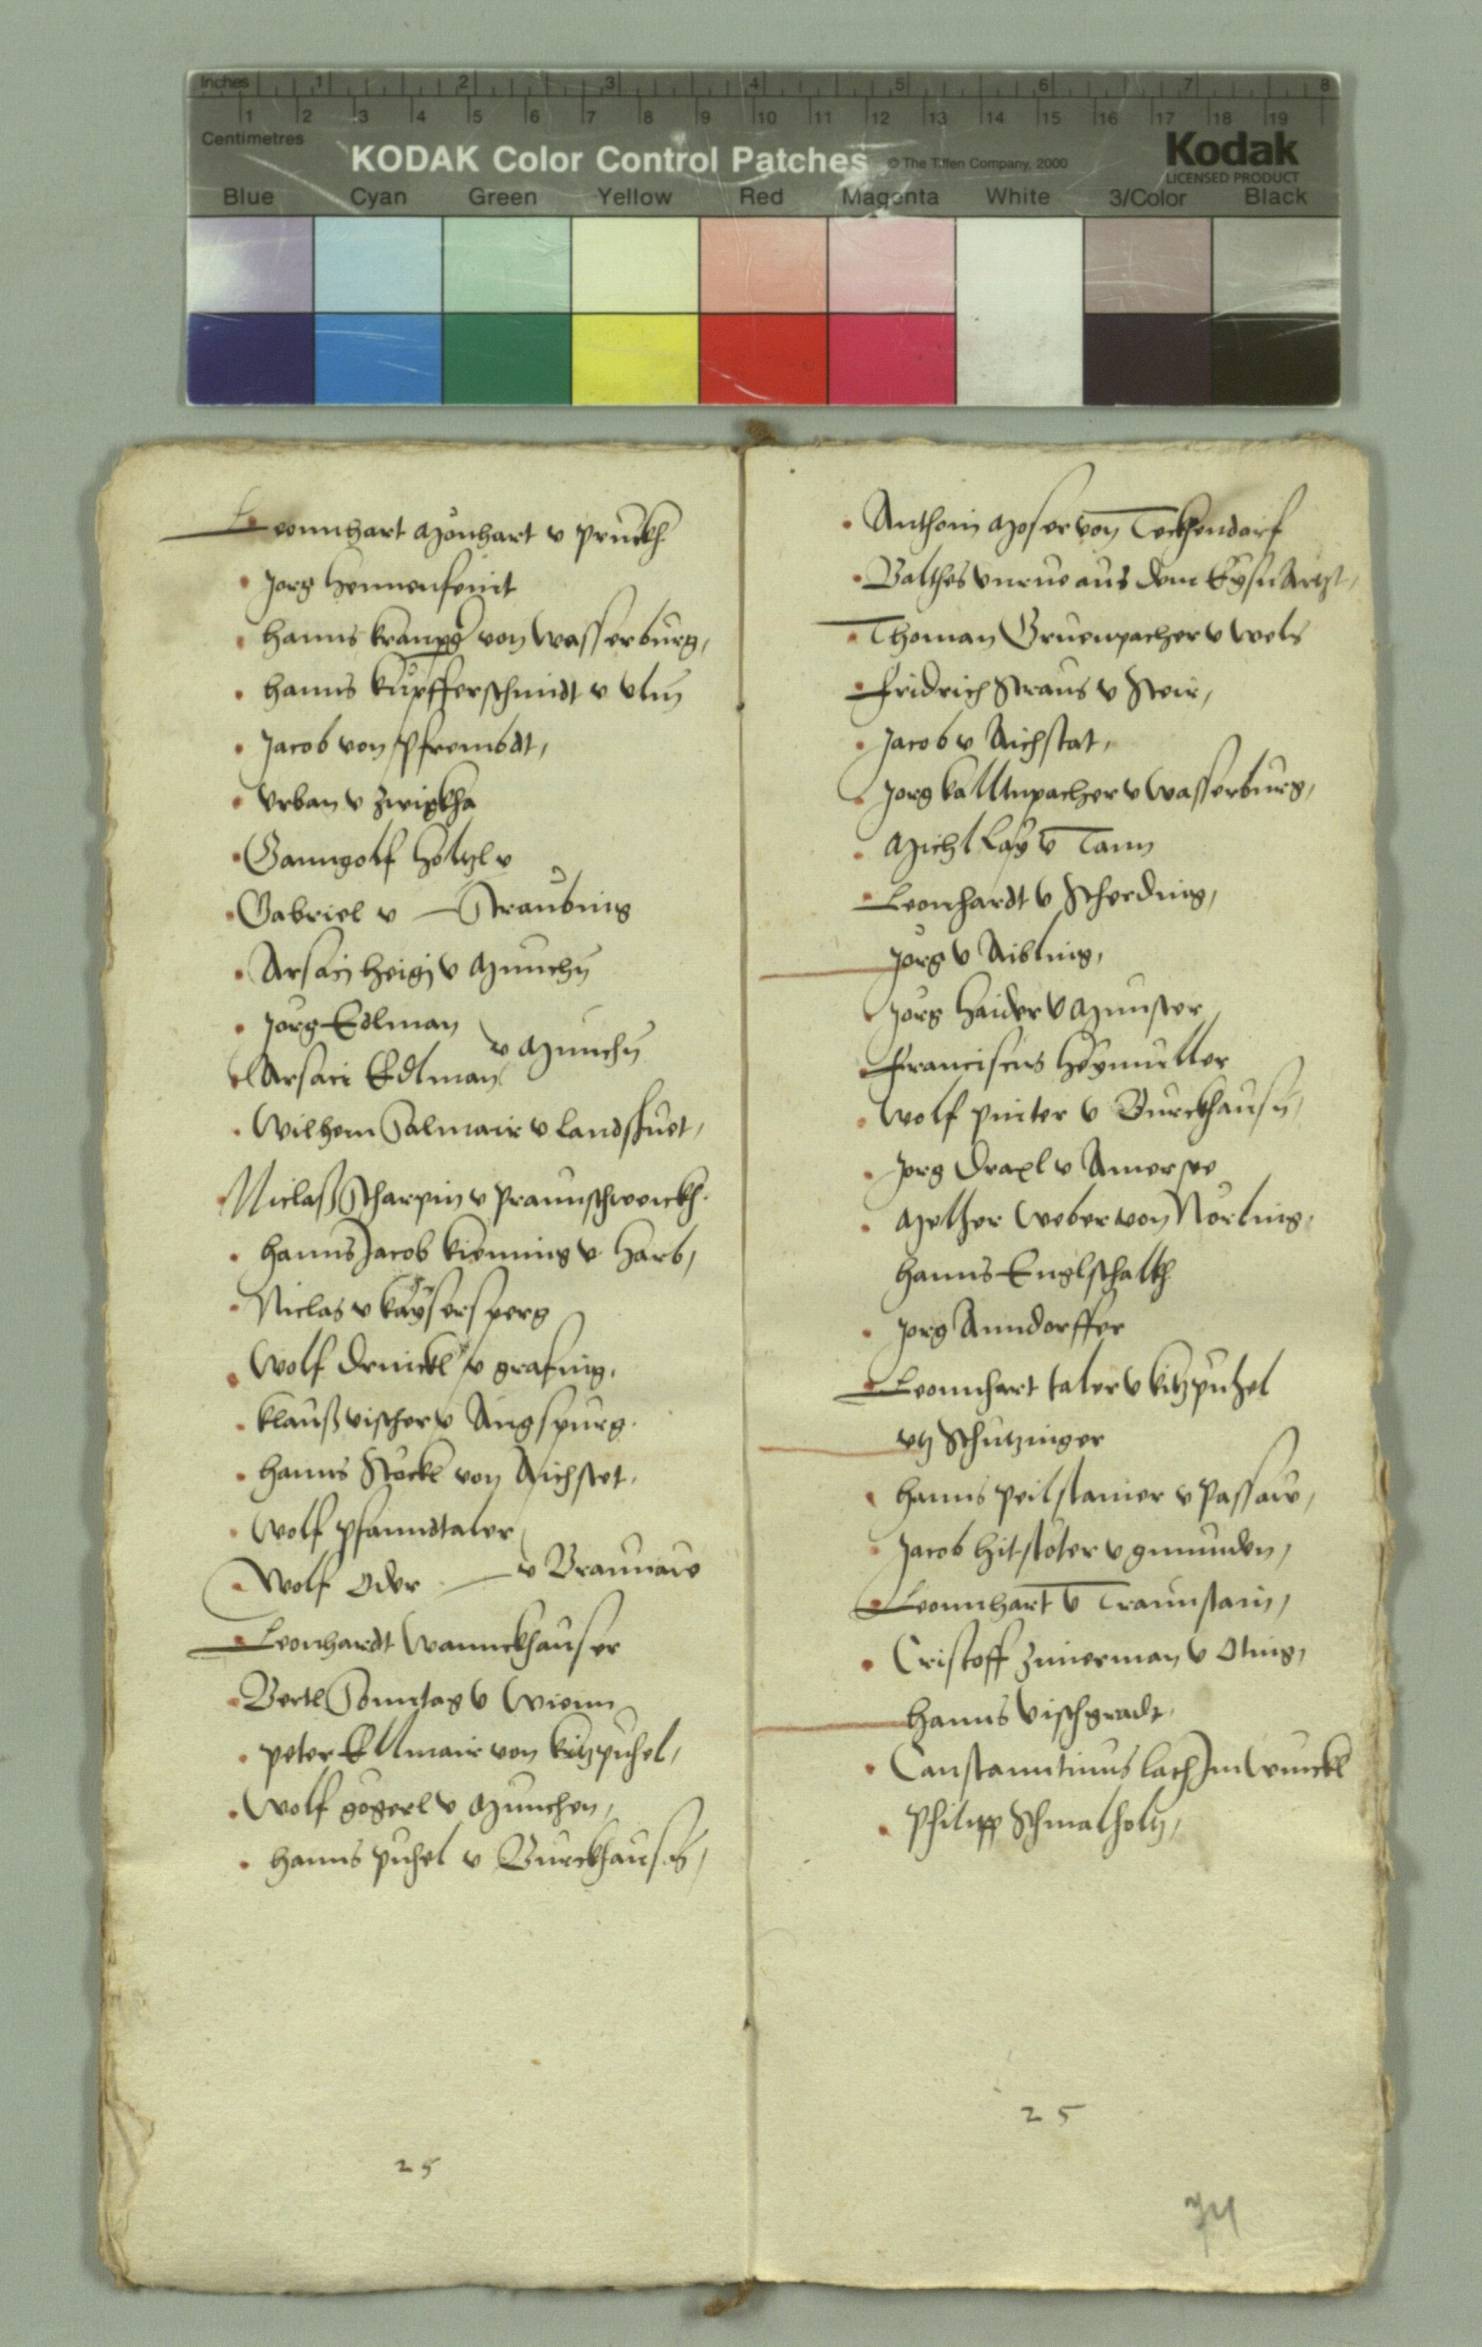 Inches 1 2 3 4 5 6 7 8
1 2 3 4 5 6 7 8 9 10 11 12 13 14 15 16 17 18 19
Centimetres
KODAK Color Control Patches © The Tiffen Company, 2000 Kodak
LICENSED PRODUCT
Blue Cyan Green Yellow Red Magenta White 3/Color Black
Leonnhart Mönhart v Pruckh
Jorg Hennenfeint
Hanns von Wasserburg,
Hanns Kupfferschmidt v Ulm
Jacob von Pfrembdt,
Vrban v Zwigkha
Ganngolf Höltzl v
Gabriel v Straubing
Arsaci Heigl v Munchn
Jorg Edlman
v Munchn
Arsaci Edlman
Wilhem Salmair v Landshuet,
Niclaß Scharpin v Praunschweickh.
Hanns Jacob Kienning v Harb,
Niclas v Kaysersperg
Wolf Drinckl v Grafing.
Klauß Vischer v Augspurg.
Hanns Stöckl von Aichstet.
Wolf Pfanndtaler
v Braunaw
Wolf Öder
Leonhardt Wannckhauser
Bertl Sonntag v Wienn
Peter Ellmair von Kitzpuhel,
Wolf Gögerl v Munchen,
Hanns Puhel v Burckhausn,
25
Anthoni Moser von Teckhendorf
Balthes aus dem Eysn Artzt,
Thoman Gruenpacher v Wels
Fridrich Straus v Steir,
Jacob v Aichstat,
Jorg Kalltnpacher v Wasserburg,
Michl Lay v Tann
Leonhardt v Scherding,
Jorg v Aibling,
Jörg Haider v Munster
Franciscus Heymuller
Wolf Pinter v Burckhausn,
Jorg Draxl v Amersee
Melher Weber von Nörling,
Hanns Englschalkh
Jorg Anndorffer
Leonnhart Taler v Kitzpuhel
Utz Schutzinger
Hanns Peilstainer v Passaw,
Jacob Hitstöter v Gmunden,
Leonnhart v Traunstain,
Cristoff Zimerman v Öting,
Hanns Vischgradt,
Constanntinus Lach Im Winckl
Philipp Schmalholtz,
25
74